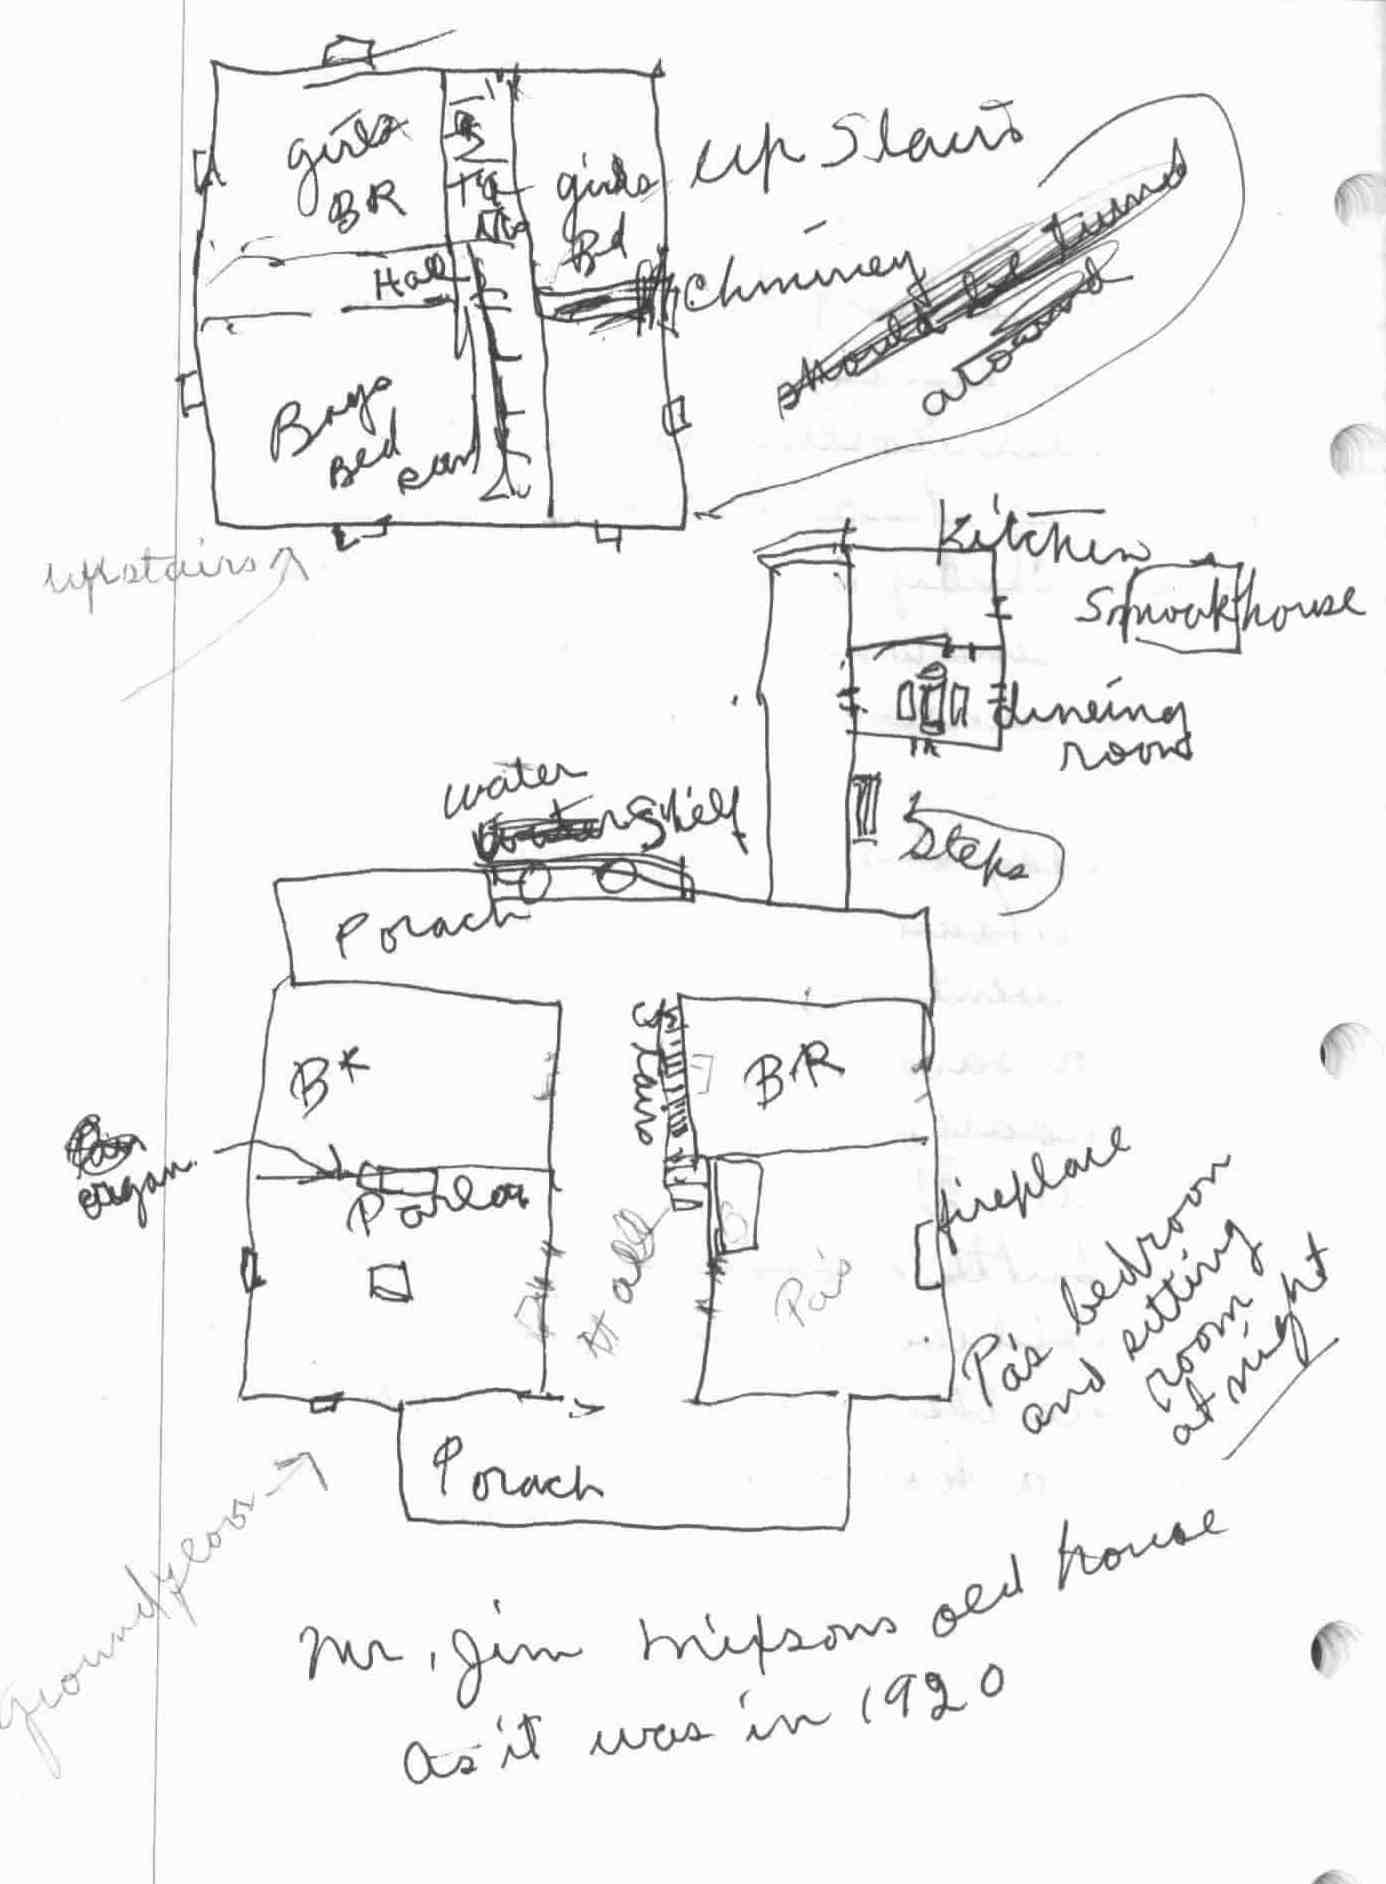 girls
BR
girls
Bd
up Stairs
Hall
Chminey
should be turned
around
Boys
Bed
upstairs
Kitchen
Smoakhouse
dineing
room
water
Shelf
Steps
Porach
BR
Stairs
BR
organ
Parlor
Hall
Pa's
fireplace
Pa's bedroom
and sitting
room
at night
Porach
groundfloor
Mr. Jim
old house
as it was in 1920